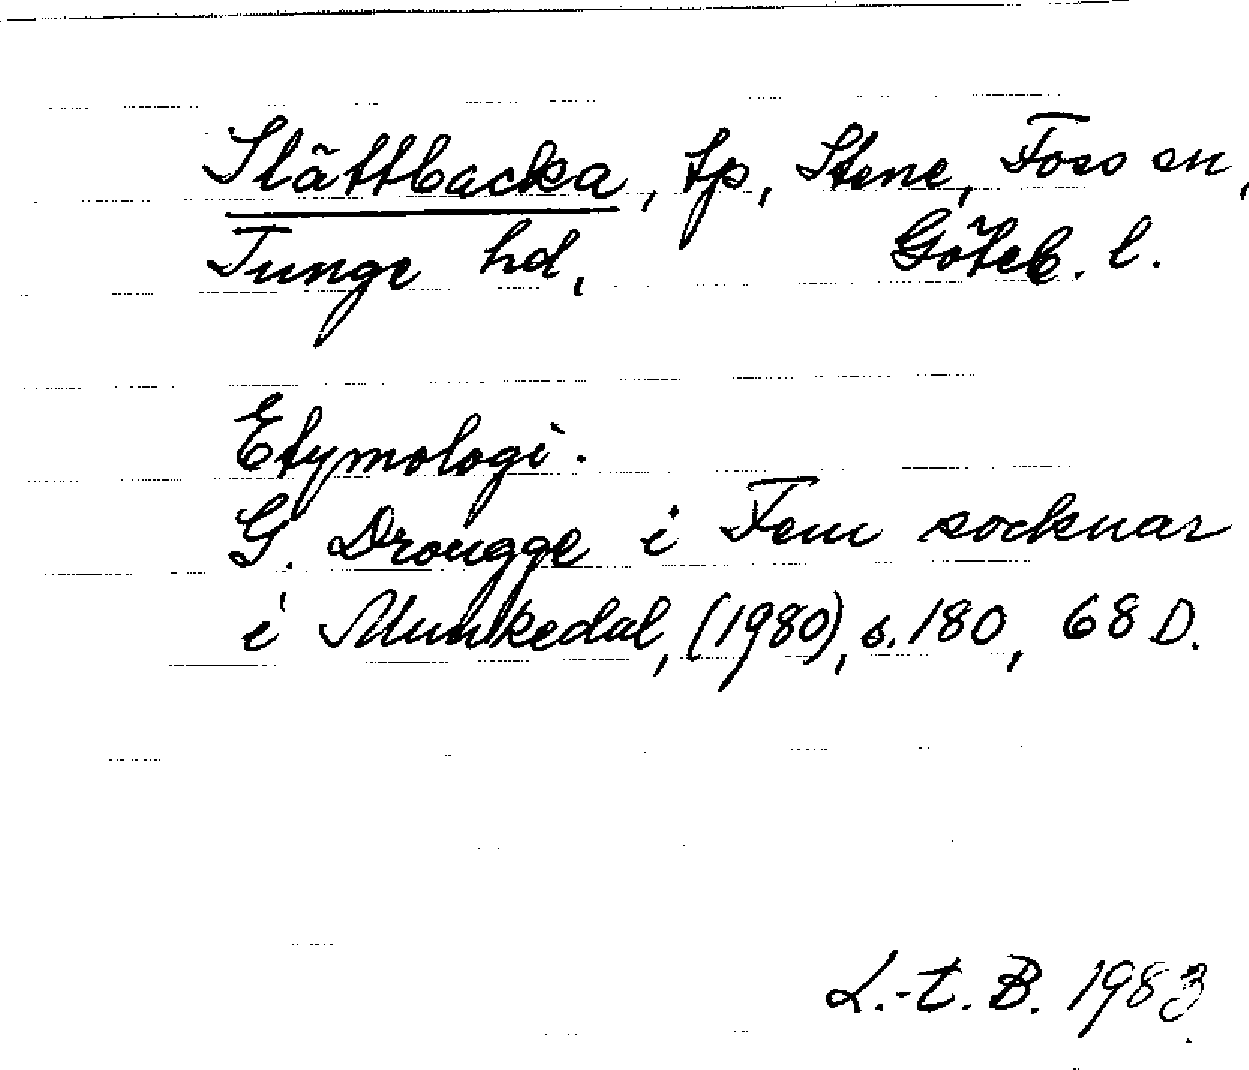 Slättbacka, tp, Stene, Foss sn,
Tunge hd, Göteb. l.
Etymologi.
G. Drougge i Fem socknar
i Munkedal, (1980), s. 180, 68 D.
L.-t. B. 1983